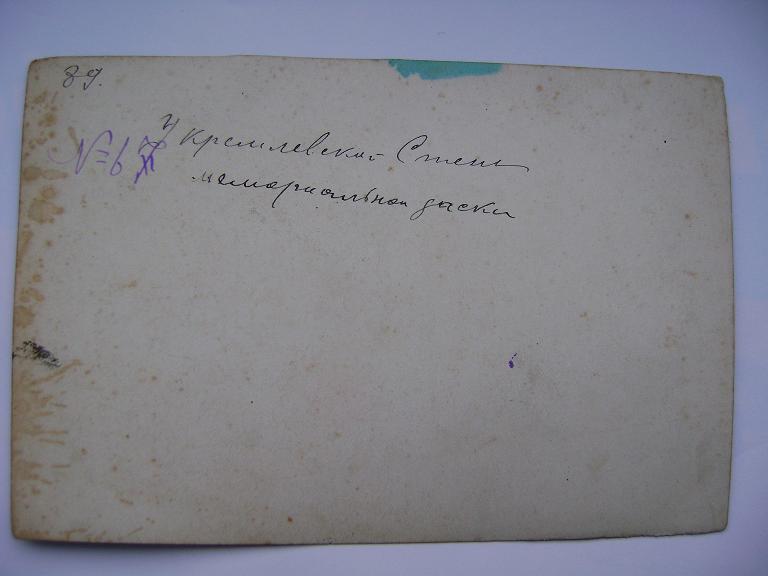 89.
№ 67
у кремлевской Стены
мемориальной доски